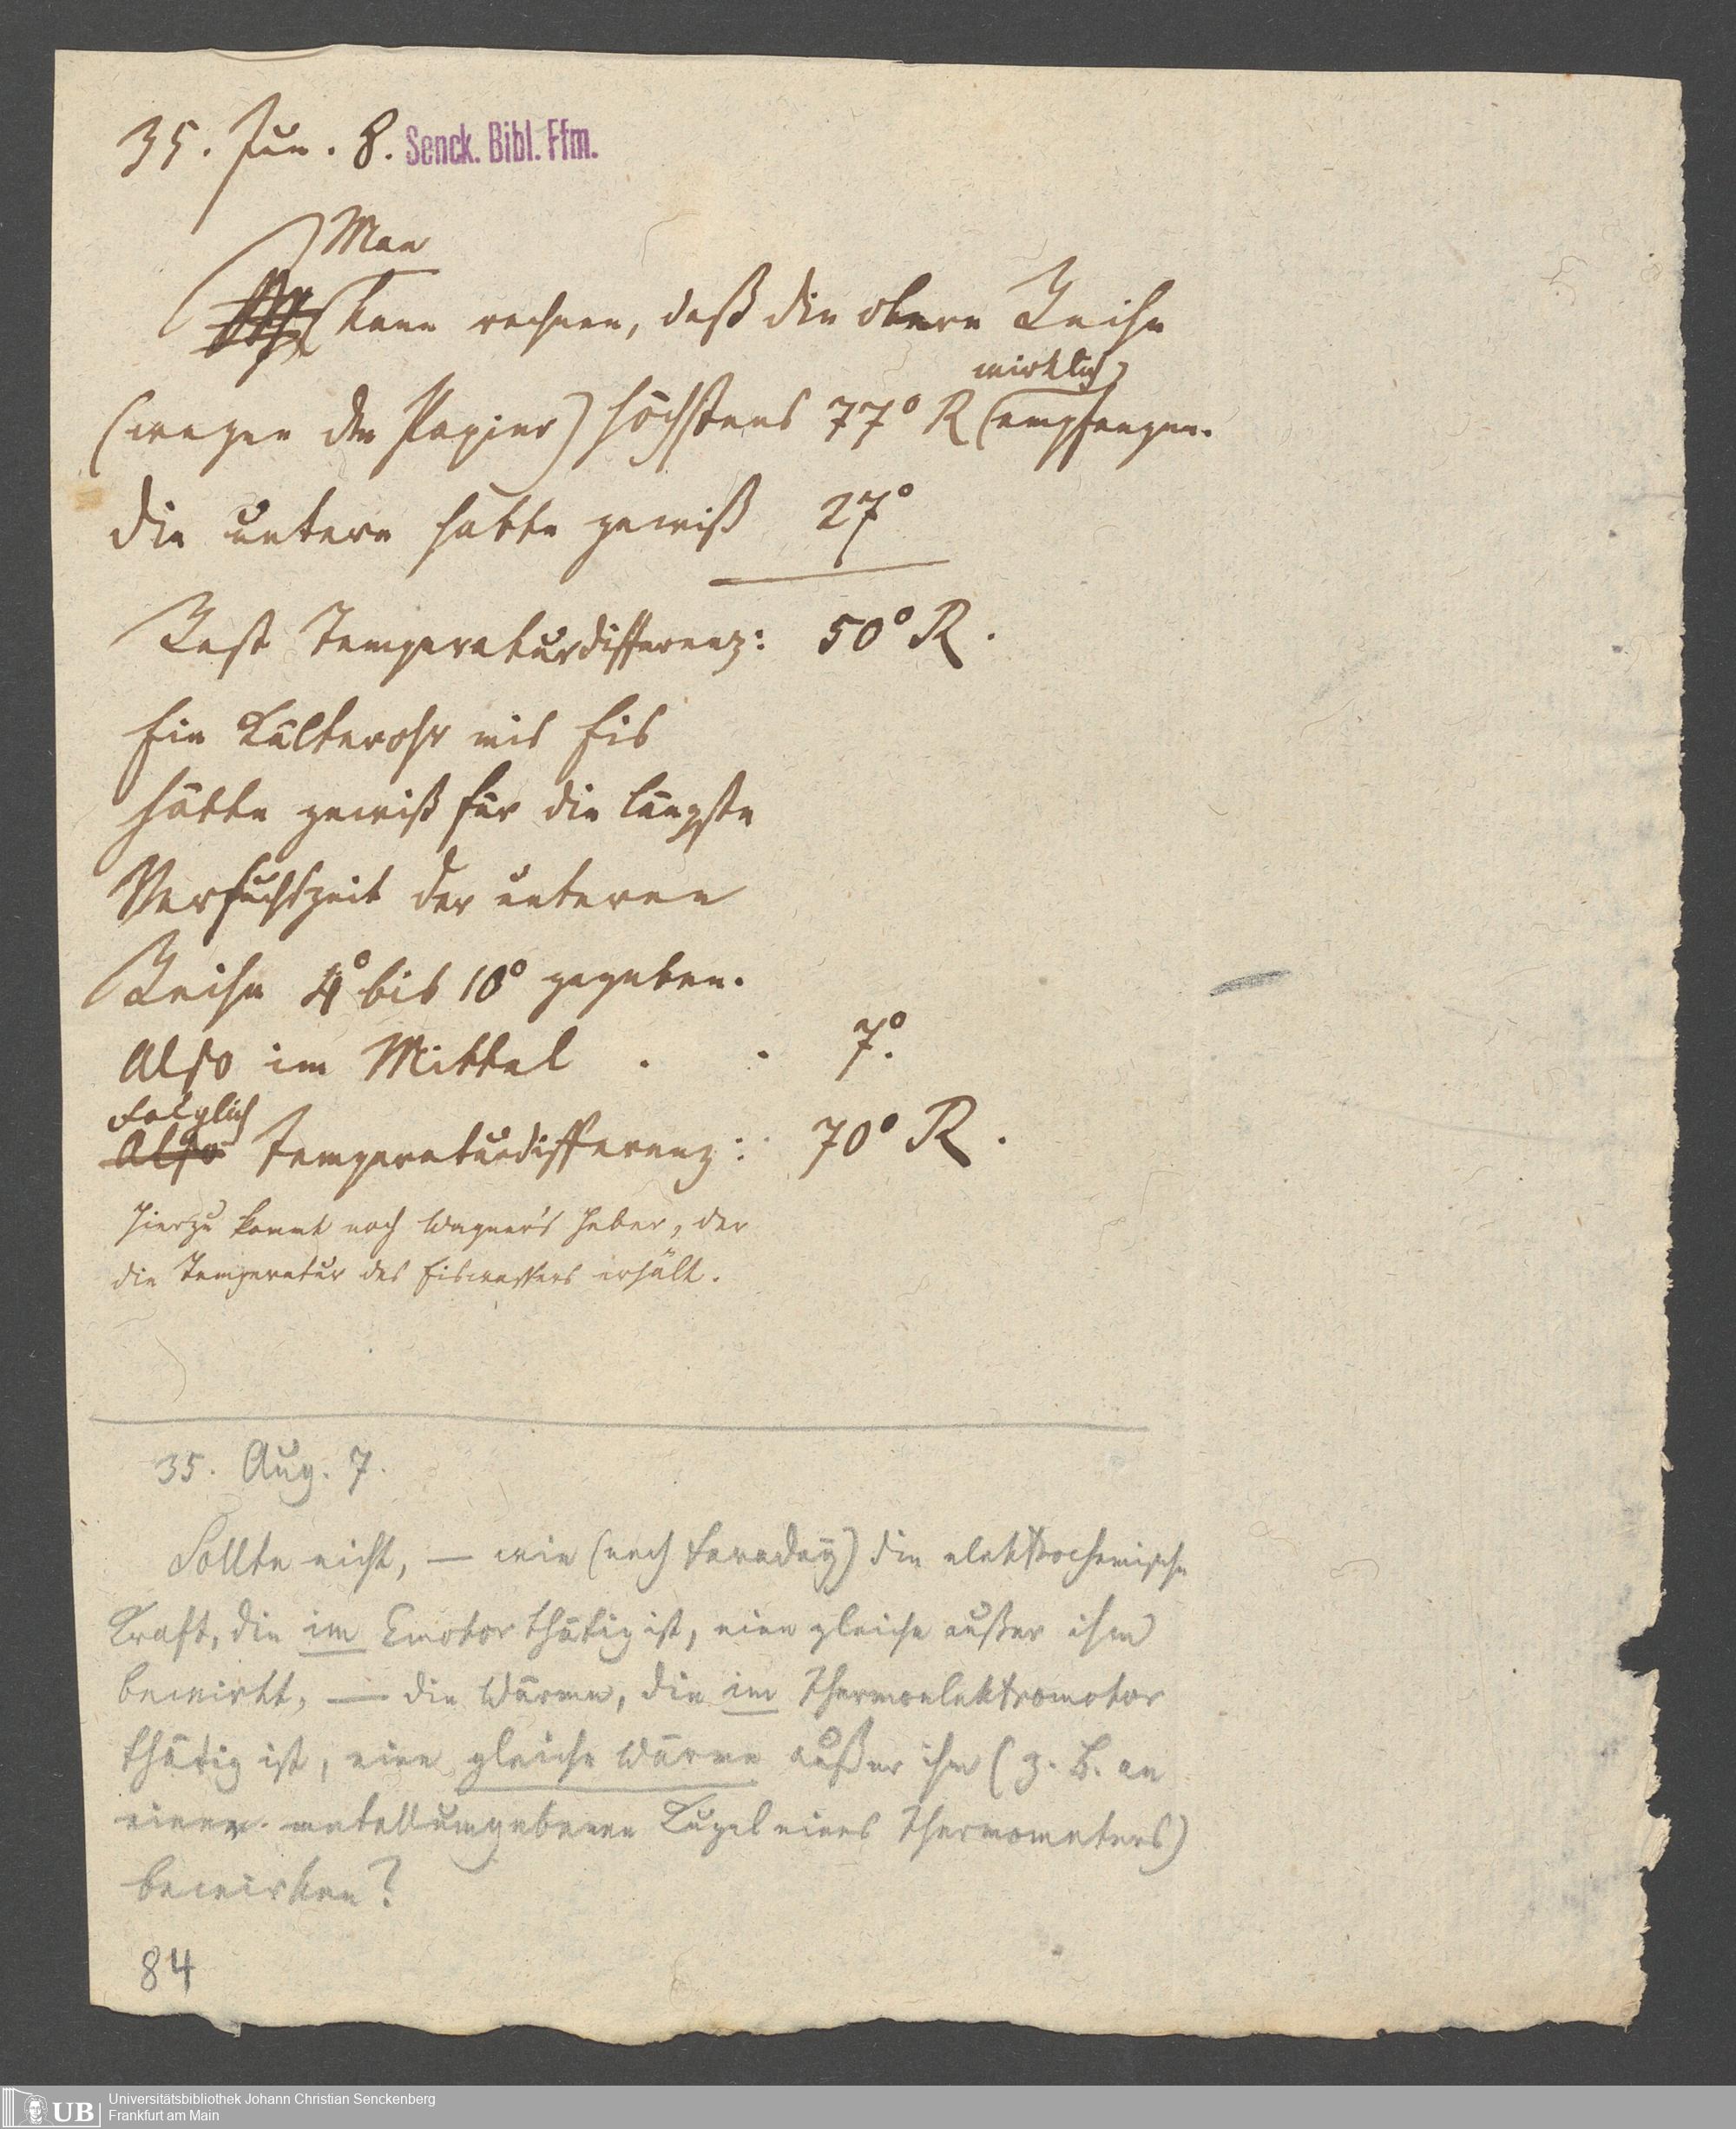 35. Jun. 8. Senck. Bibl. Ffm.
Man
kann rechnen, daß die obere Reihe
wirklich
(wegen der Papiere) höchstens 77° R empfangen.
die untere hatte gewiß 27°
Rest Temperaturdifferenz: 50° R.
Ein Kälterohr mit Eis
hätte gewiß für die längste
Versuchszeit der unteren
Reihe 4° bis 10° gegeben.
Also im Mittel . . 7°.
Folglich
Also Temperaturdifferenz: 70° R.
Hierzu kommt noch Wagner's Heber, der
die Temperatur des Eiswassers erhält.
35. Aug. 7.
Sollte nicht, — wie (nach Faraday) die elektrochemische
Kraft, die im Emotor thätig ist, eine gleiche außer ihm
bewirkt, — die Wärme, die im Thermoelektromotor
thätig ist, eine gleiche Wärme außer ihm (z. B. an
einer metallumgebenen Kugel eines Thermometers)
bewirken?
84
UB Universitätsbibliothek Johann Christian Senckenberg
Frankfurt am Main